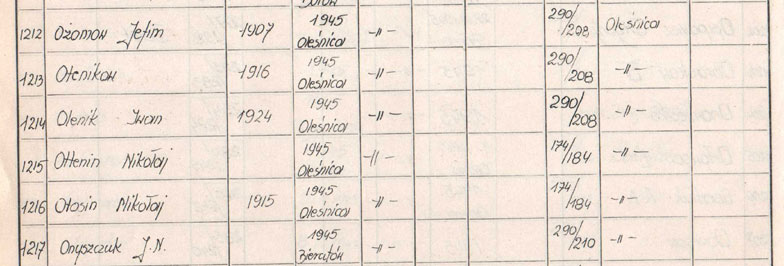 1212 Ożomow Jefim 1907 1945 Oleśnica -//- 290/208 Oleśnica
1213 Otenikow 1916 1945 Oleśnica -//- 290/208 -//-
1214 Olenik Iwan 1924 1945 Oleśnica -//- 290/208 -//-
1215 Ottenin Nikołaj 1945 Oleśnica -//- 174/184 -//-
1216 Otosin Mikołaj 1915 1945 Oleśnica -//- 174/184 -//-
1217 Onyszczuk J.N. 1945 -//- 290/210 -//-